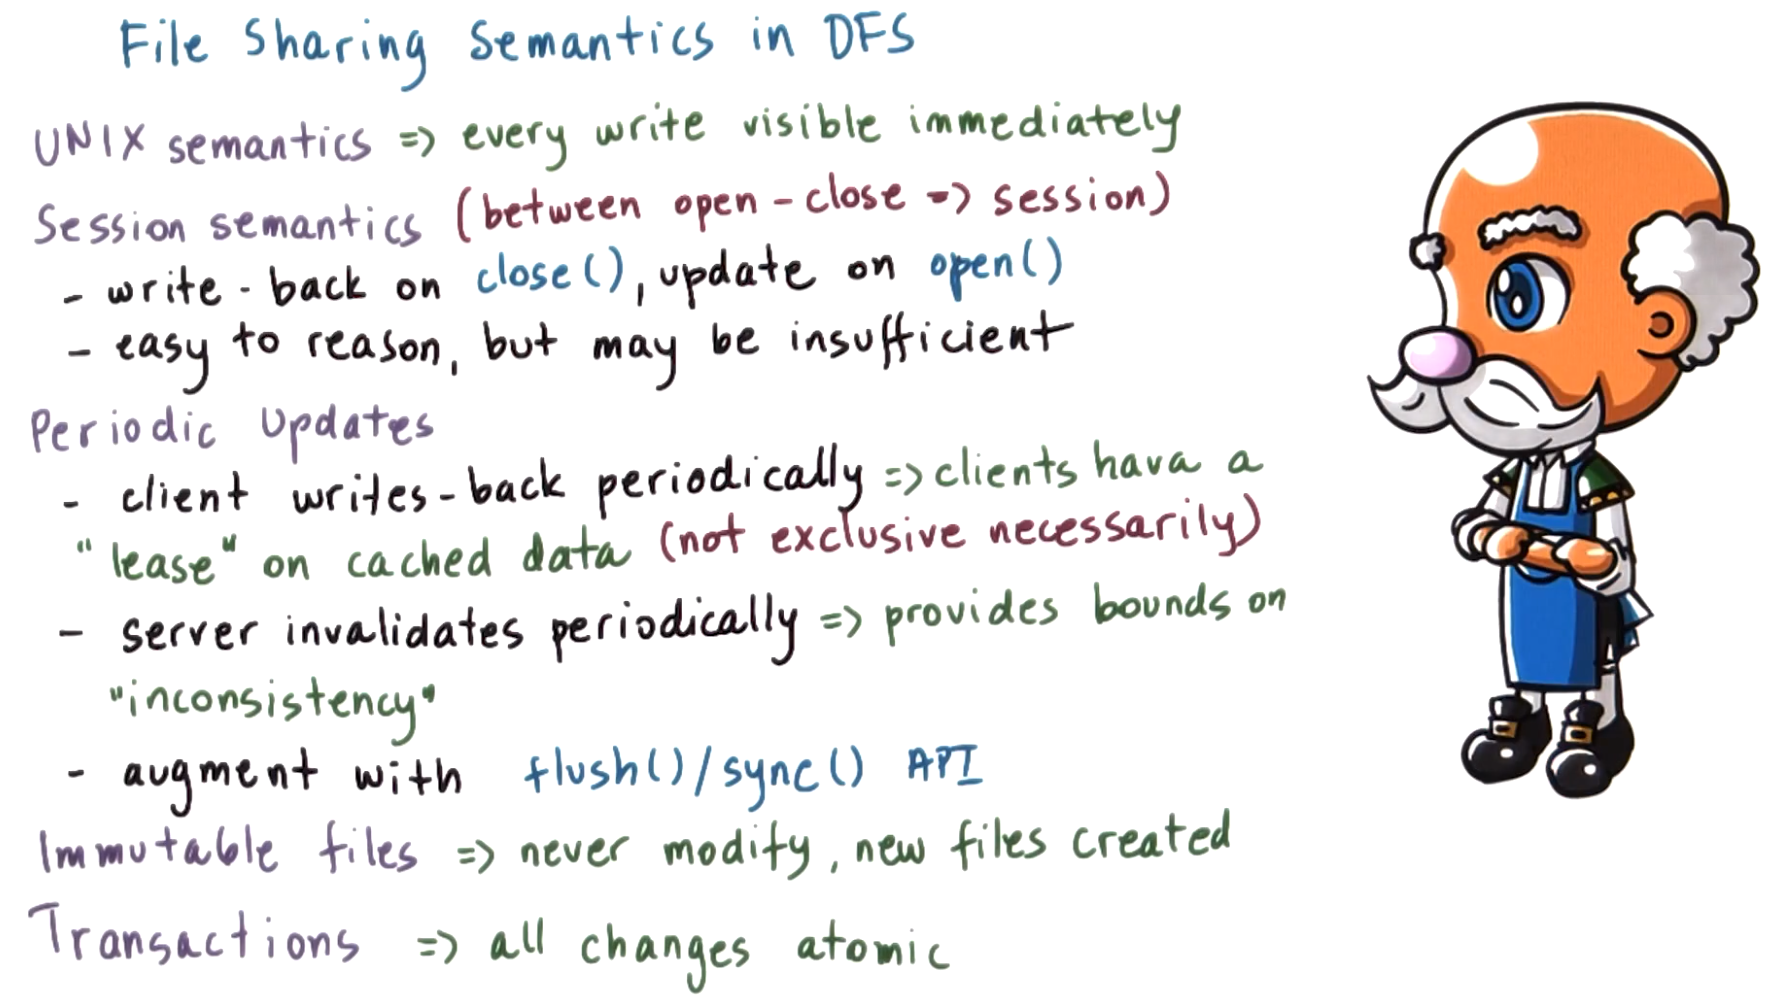 File Sharing Semantics in DFS
UNIX semantics => every write visible immediately
Session semantics (between open-close => session)
- write-back on close(), update on open()
- easy to reason, but may be insufficient
Periodic Updates
- client writes-back periodically => clients hava a
"lease" on cached data (not exclusive necessarily)
- server invalidates periodically => provides bounds on
"inconsistency"
- augment with flush()/sync() API
Immutable files => never modify, new files created
Transactions => all changes atomic